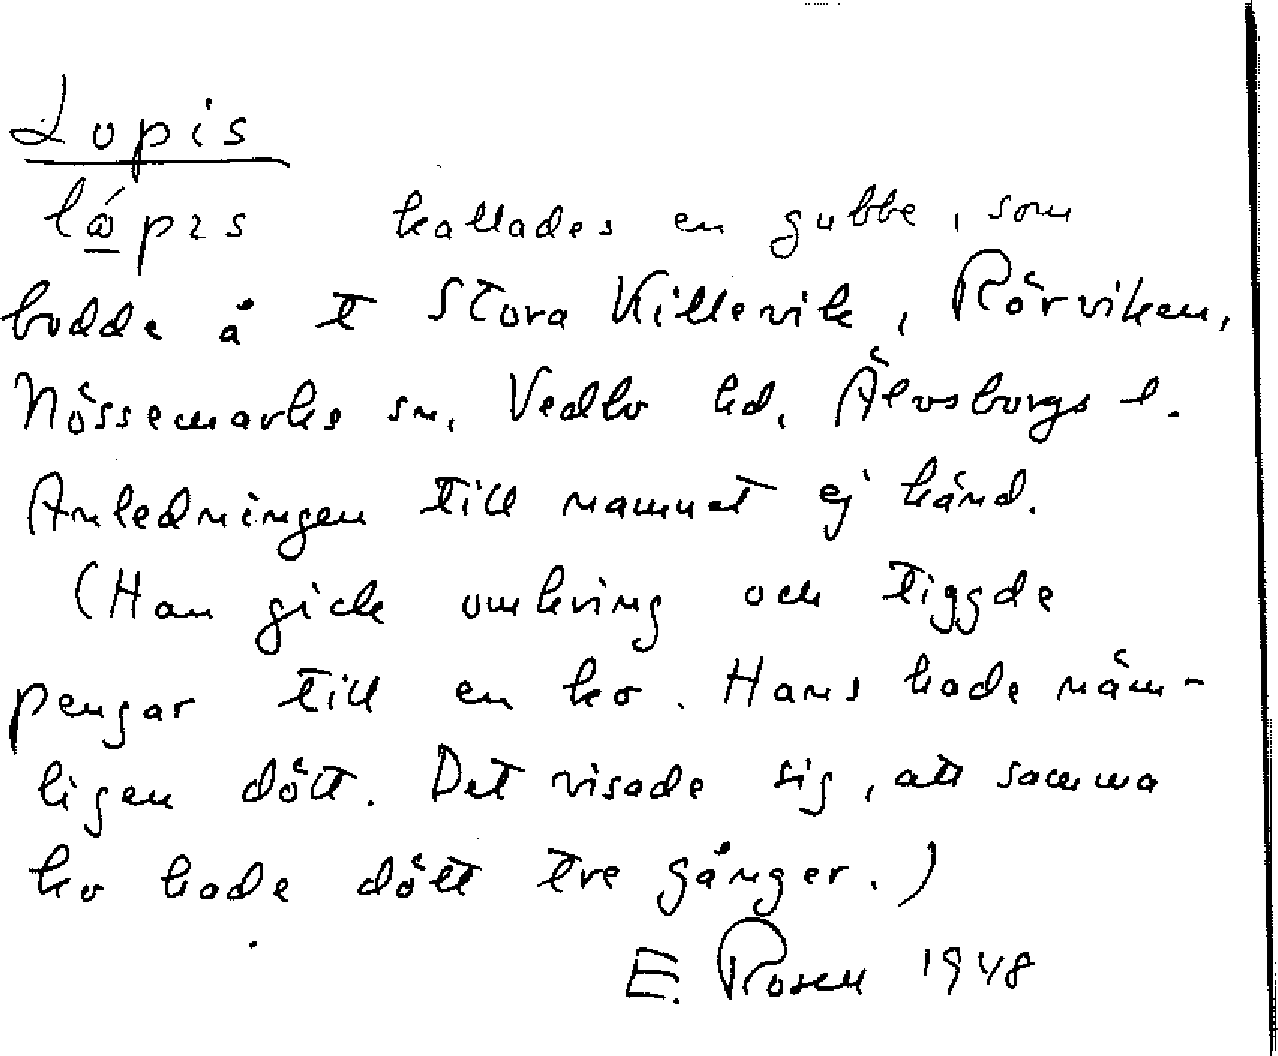 Lopis
lǻpɪs kallades en gubbe, som
bodde å t Stora Killevik, Rörviken,
Nössemarks sn, Vedbo hd, Älvsborgs l.
Anledningen till namnet ej känd.
(Han gick omkring och tiggde
pengar till en ko. Hans hade näm-
ligen dött. Det visade sig, att samma
ko hade dött tre gånger.)
E. Rosen 1948